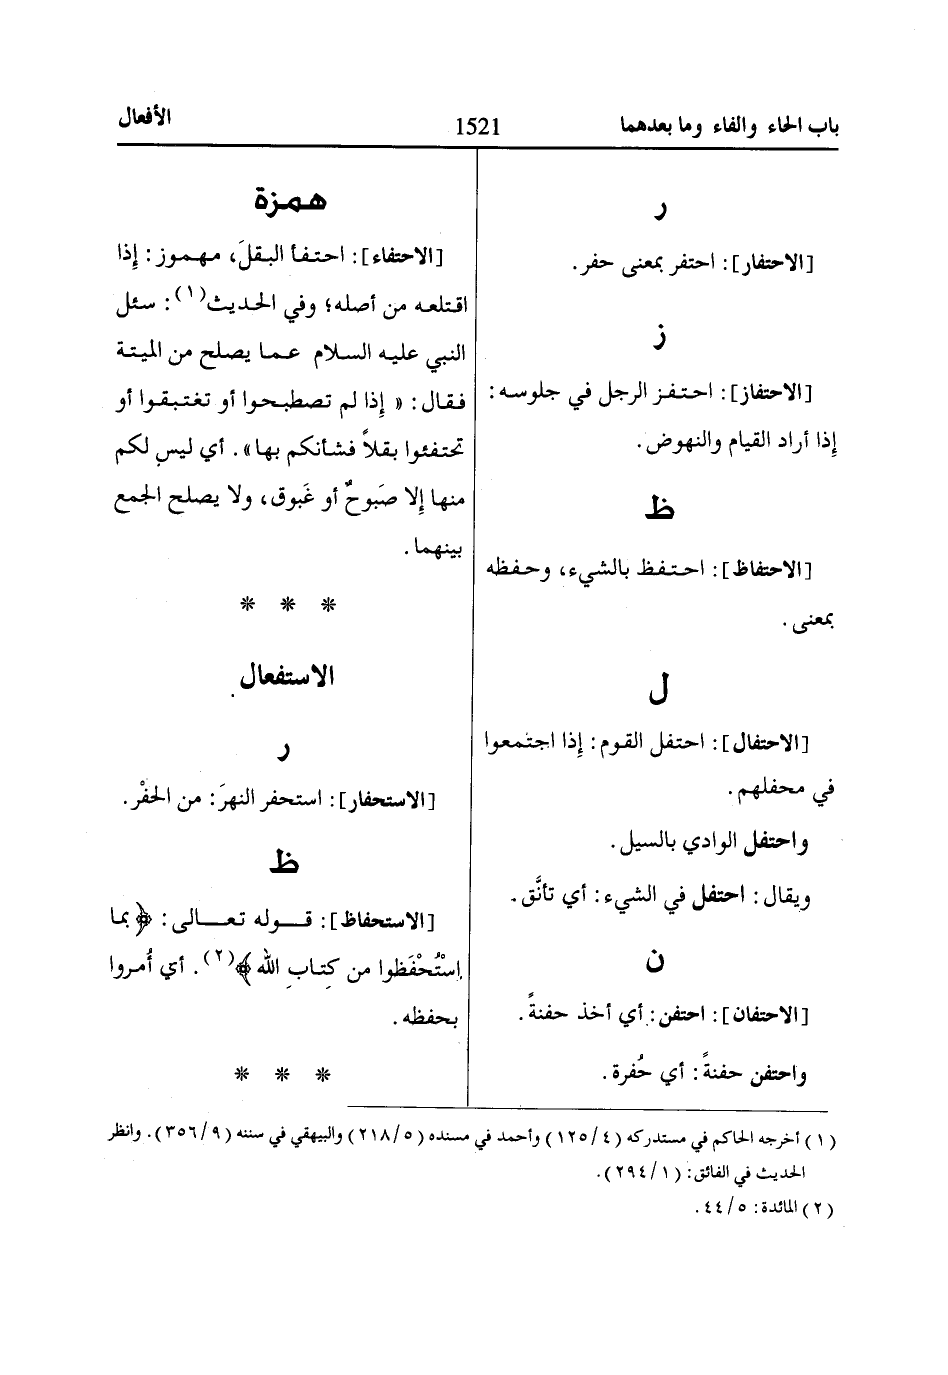 باب الحاء والفاء وما بعدهما
1521
الأفعال
ر
[الاحتفار]: احتفر بمعنى حفر.
ز
[الاحتفاز]: احتفز الرجل في جلوسه:
إذا أراد القيام والنهوض.
ظ
[الاحتفاظ]: احتفظ بالشيء، وحفظه
بمعنى.
ل
[الاحتفال]: احتفل القوم: إذا اجتمعوا
في محفلهم.
واحتفل الوادي بالسيل.
ويقال: احتفل في الشيء: أي تأنَّق.
ن
[الاحتفان]: احتفن: أي أخذ حفنةً.
واحتفن حفنةً: أي حُفرة.
همزة
[الاحتفاء]: احتفأ البقلَ، مهموز: إذا
اقتلعه من أصله؛ وفي الحديث(١): سئل
النبي عليه السلام عما يصلح من الميتة
فقال: « إذا لم تصطبحوا أو تغتبقوا أو
تحتفئوا بقلاً فشأنكم بها». أي ليس لكم
منها إلا صَبوحٌ أو غَبوق، ولا يصلح الجمع
بينهما.
* * *
الاستفعال
ر
[الاستحفار]: استحفر النهرَ: من الحفْر.
ظ
[الاستحفاظ]: قوله تعالى: ﴿بما
اسْتُحْفَظوا من كتابِ اللهِ﴾(٢). أي أُمروا
بحفظه.
* * *
(١) أخرجه الحاكم في مستدركه (٤/١٢٥) وأحمد في مسنده (٥/٢١٨) والبيهقي في سننه (٩/٣٥٦). وانظر
الحديث في الفائق: (١/٢٩٤).
(٢) المائدة: ٥/٤٤.